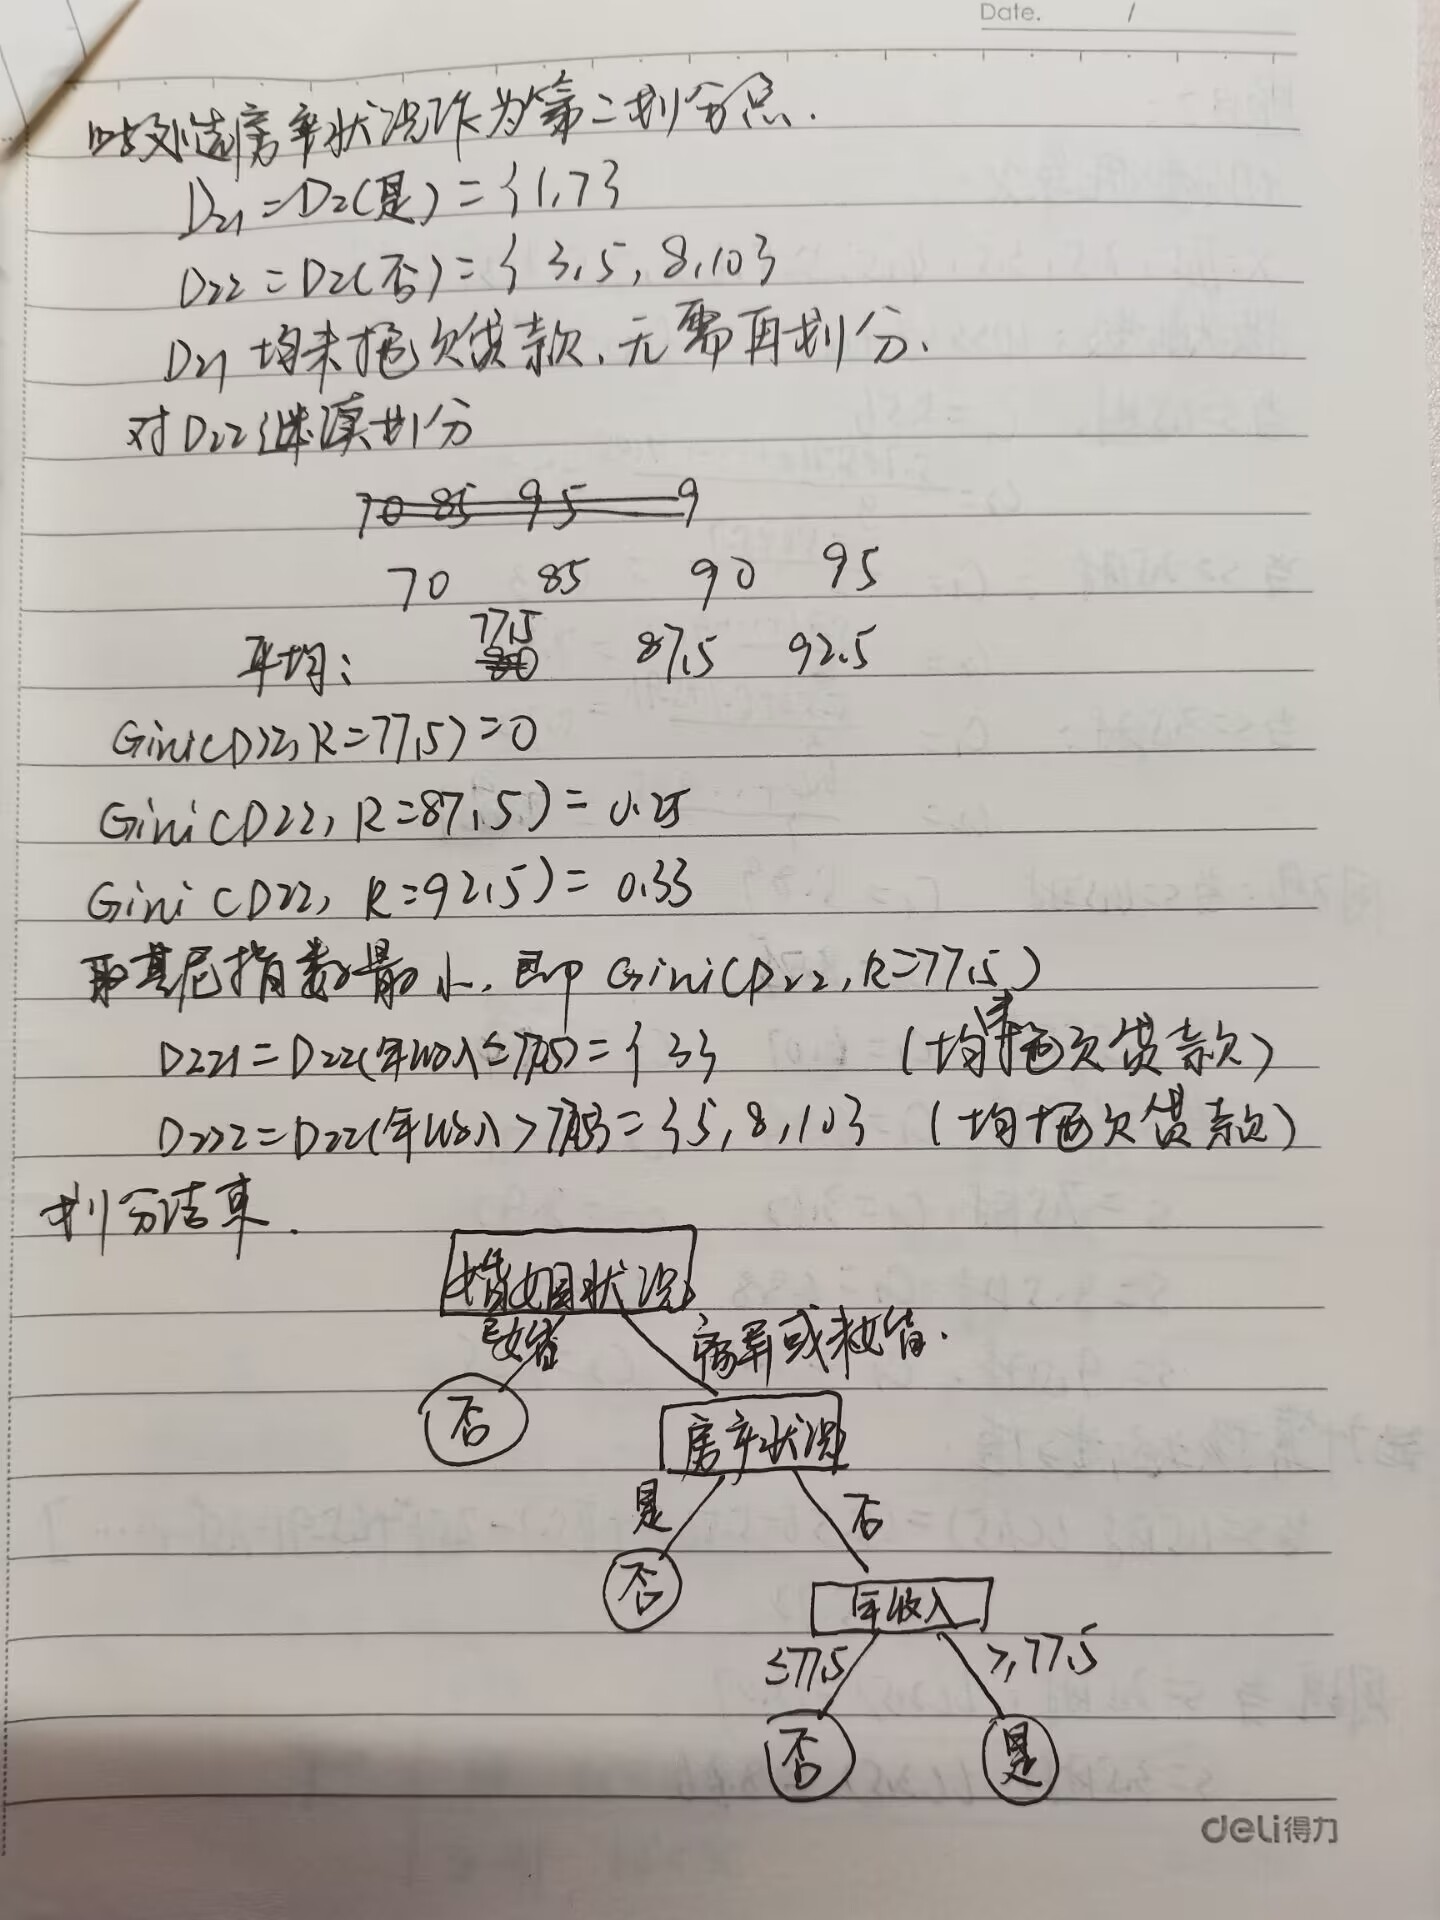 Date. /
时刻选房产状况作为第二划分点.
D21=D2(是)={1,7}
D22=D2(否)={3,5,8,10}
D21均未拖欠贷款,无需再划分.
对D22继续划分
70 85 95 9
70 85 90 95
平均: 77.5 87.5 92.5
Gini(D22,R=77.5)=0
Gini(D22,R=87.5)=0.25
Gini(D22,R=92.5)=0.33
取基尼指数最小,即Gini(D22,R=77.5)
D221=D22(年收入≤77.5)={3} (均未拖欠贷款)
D222=D22(年收入>77.5)={5,8,10} (均拖欠贷款)
划分结束.
婚姻状况
已婚 离异或未婚.
否 房产状况
是 否
否 年收入
≤77.5 >77.5
否 是
deli得力